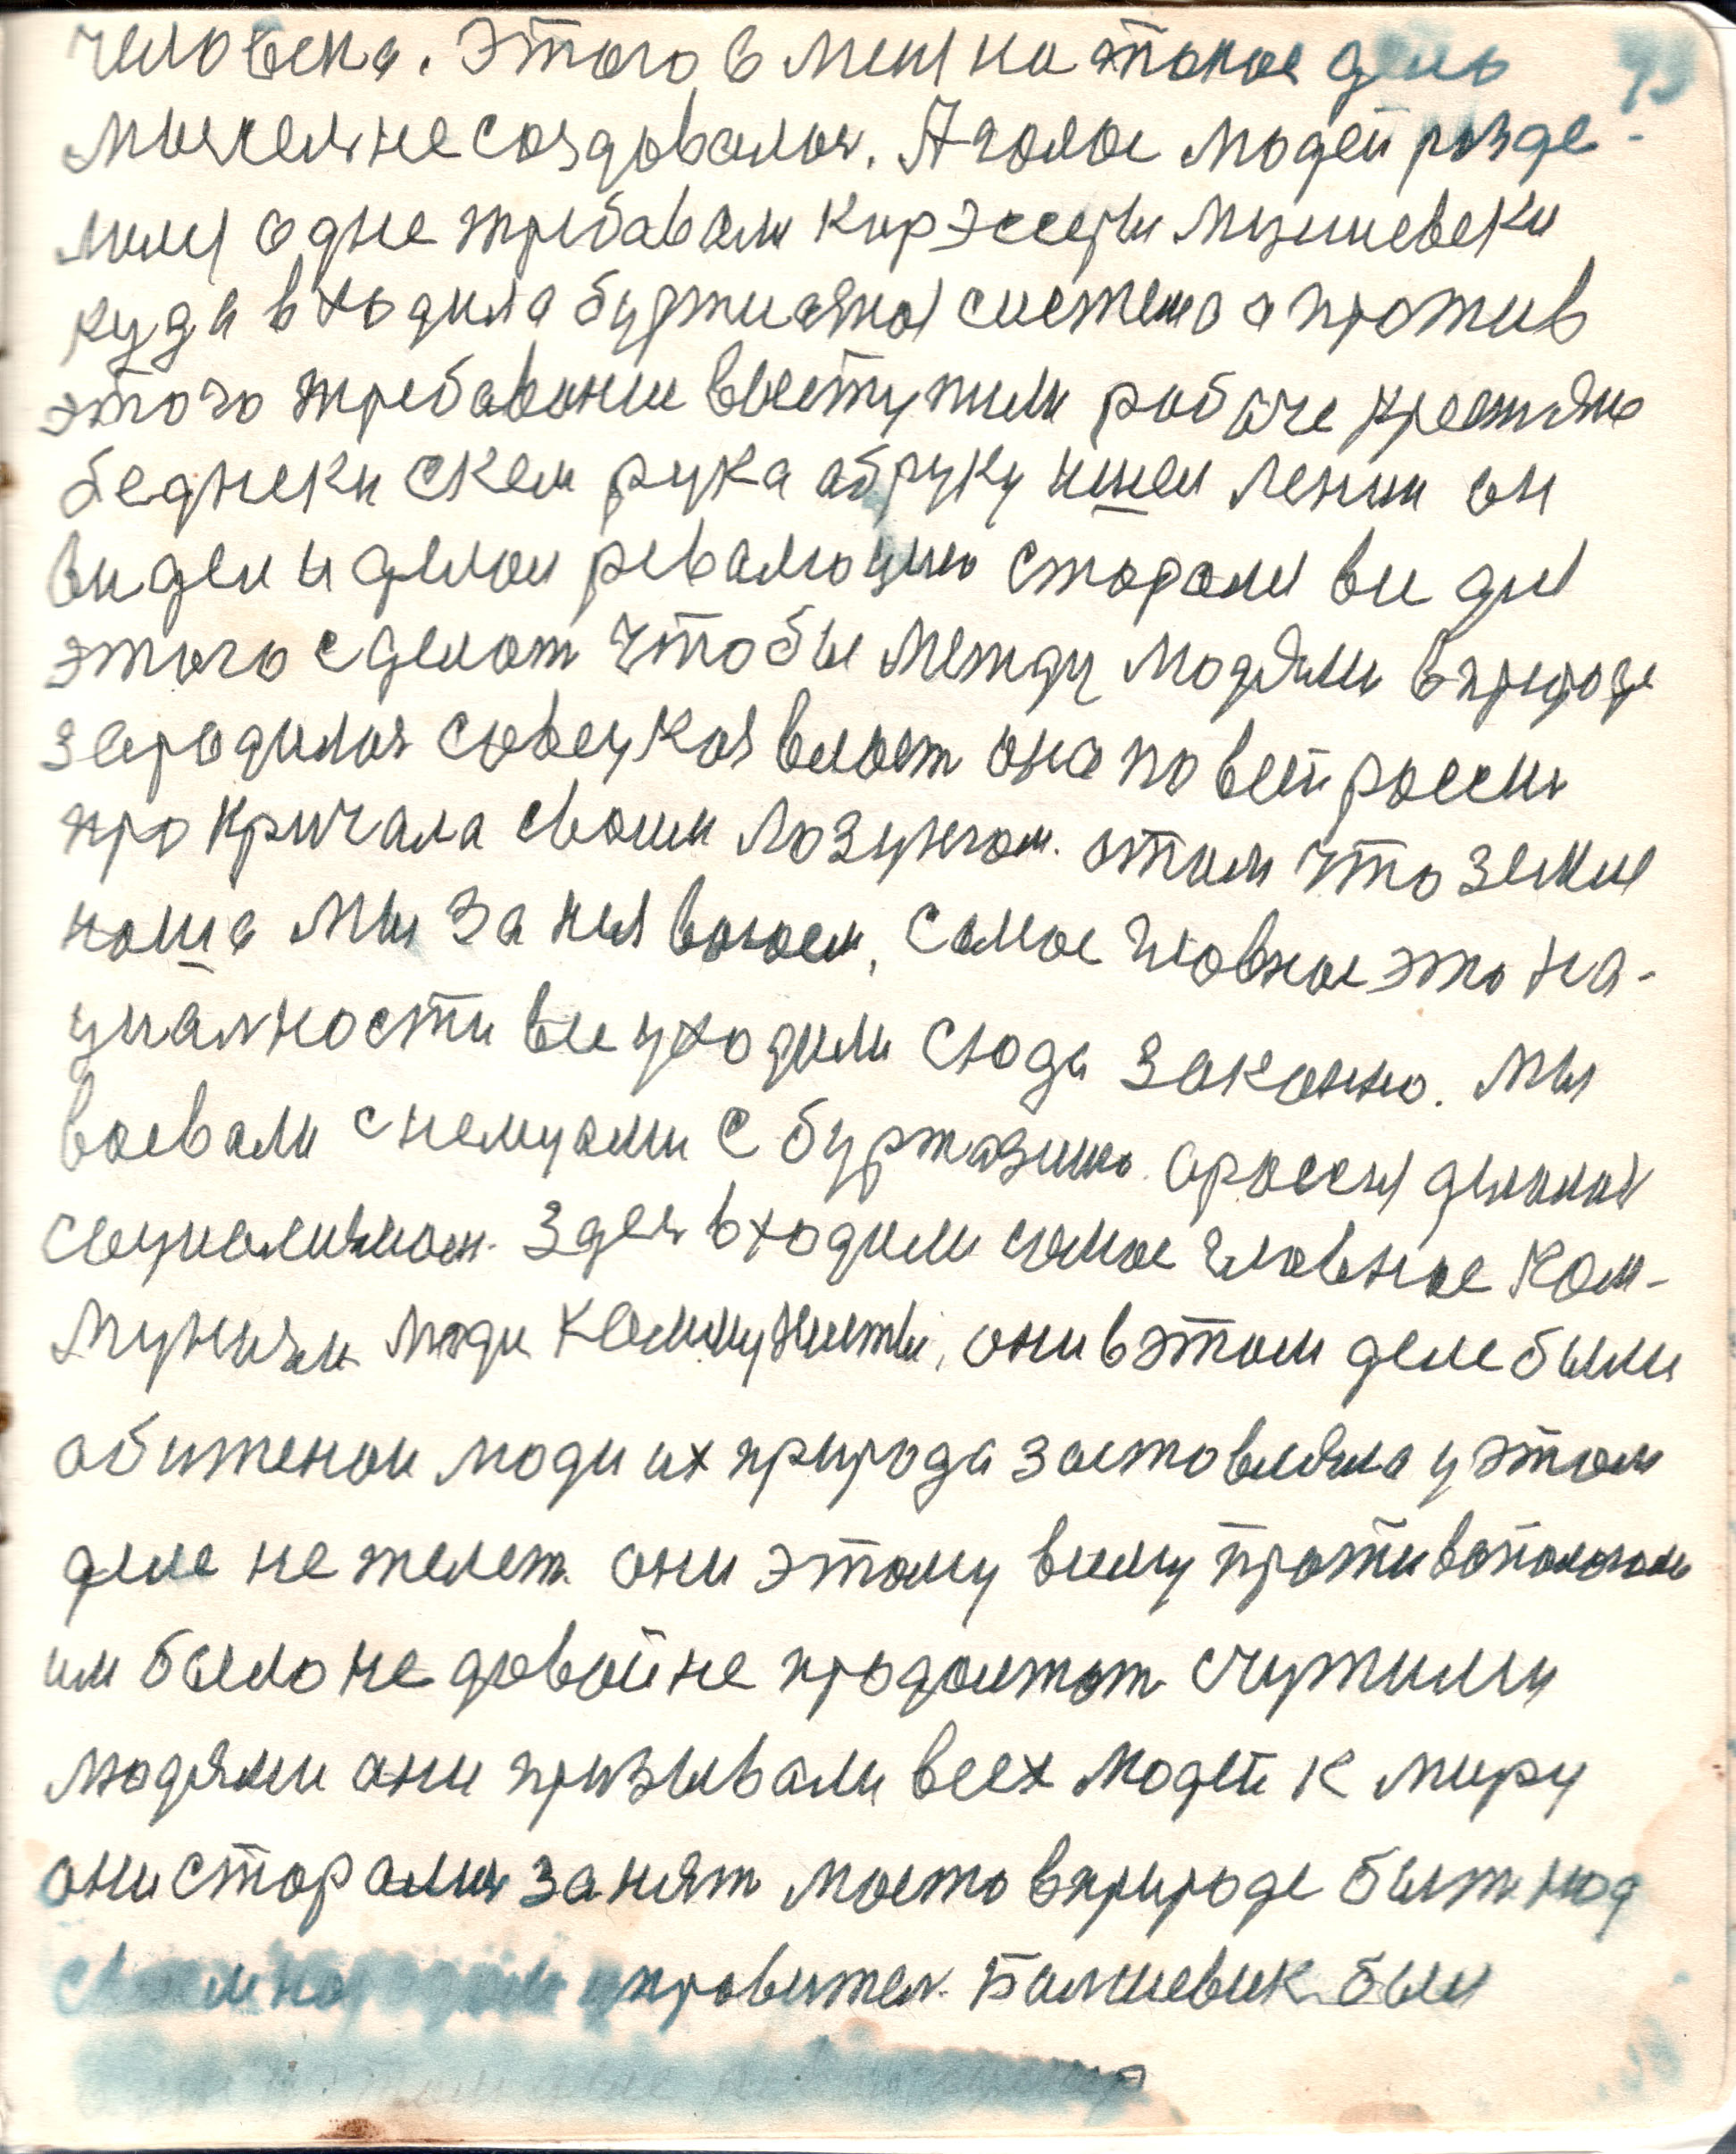 человека. Этого в мене на такое дель
мыслей не создовалося. А голос людей разде-
лилси одне требавали кир эссеры меншевеки
куда в ходила буржиазноя система а против
этого требавание выступили рабоче крестьяне
беднеки с кем рука аб руку Ленин он
виден и делал революцию старалсы вы для
этого сделат чтобы между людями в природе
зародилося совецкоя власт она по всей россеи
про кричала своим лозунгом. отом что земля
наша мы за нея воюем, самое гловное это на-
цыалности все уходили сюда заканно. Мы
воевали с немцами с буржазиею. а россия делилась
социализмом. Здеся входили самое гловное Ком-
мунизм люди Коммунисты, они в этом деле были
обиженои люди их природа застовляла у этом
деле не желет. они этому всему противополагали
им было недовайне продолжат счужими
людями они призывали всех людей к миру
они сторались занят место в природе быт над
своем народом правител. Балшевик был